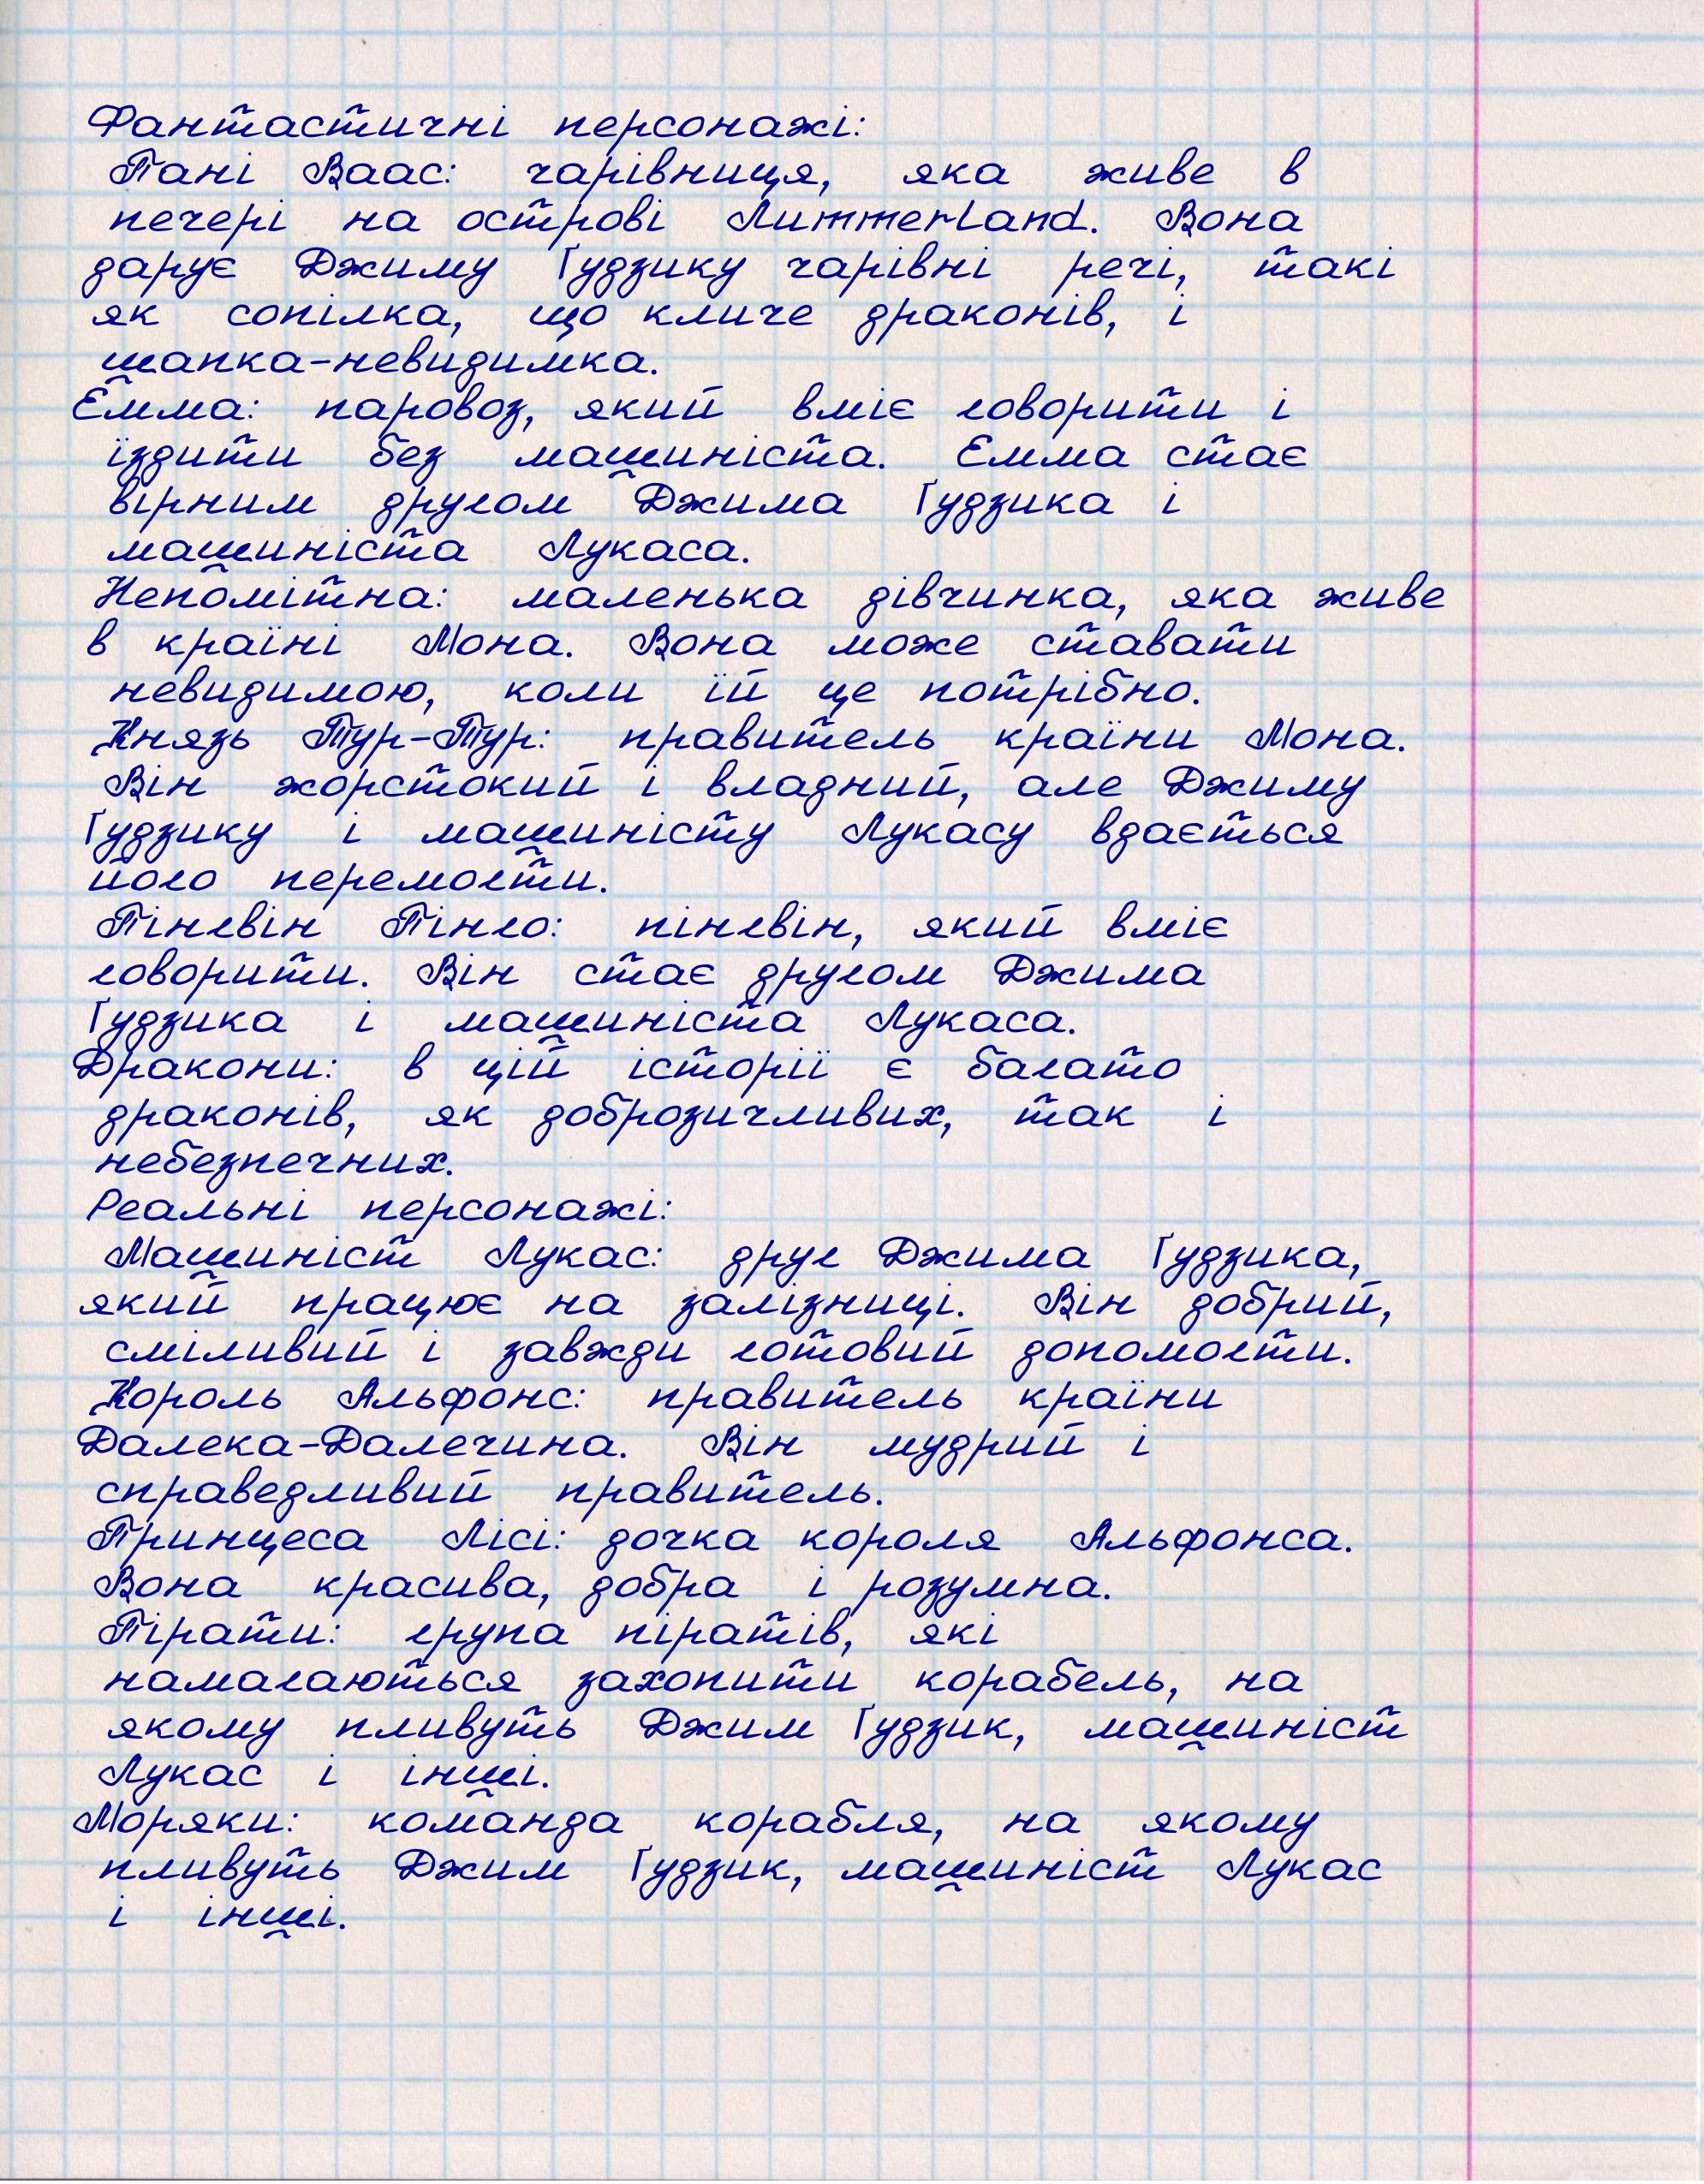 Фантастичні персонажі:
Пані Ваас: чарівниця, яка живе в
печері на острові Лиmmerland. Вона
дарує Джиму Ґудзику чарівні речі, такі
як сопілка, що кличе драконів, і
шапка-невидимка.
Емма: паровоз, який вміє говорити і
їздити без машиніста. Емма стає
вірним другом Джима Ґудзика і
машиніста Лукаса.
Непомітна: маленька дівчинка, яка живе
в країні Мона. Вона може ставати
невидимою, коли їй це потрібно.
Князь Тур-Тур: правитель країни Мона.
Він жорстокий і владний, але Джиму
Ґудзику і машиністу Лукасу вдається
його перемогти.
Пінгвін Пінго: пінгвін, який вміє
говорити. Він стає другом Джима
Ґудзика і машиніста Лукаса.
Дракони: в цій історії є багато
драконів, як доброзичливих, так і
небезпечних.
Реальні персонажі:
Машиніст Лукас: друг Джима Ґудзика,
який працює на залізниці. Він добрий,
сміливий і завжди готовий допомогти.
Король Альфонс: правитель країни
Далека-Далечина. Він мудрий і
справедливий правитель.
Принцеса Лісі: дочка короля Альфонса.
Вона красива, добра і розумна.
Пірати: група піратів, які
намагаються захопити корабель, на
якому пливуть Джим Ґудзик, машиніст
Лукас і інші.
Моряки: команда корабля, на якому
пливуть Джим Ґудзик, машиніст Лукас
і інші.